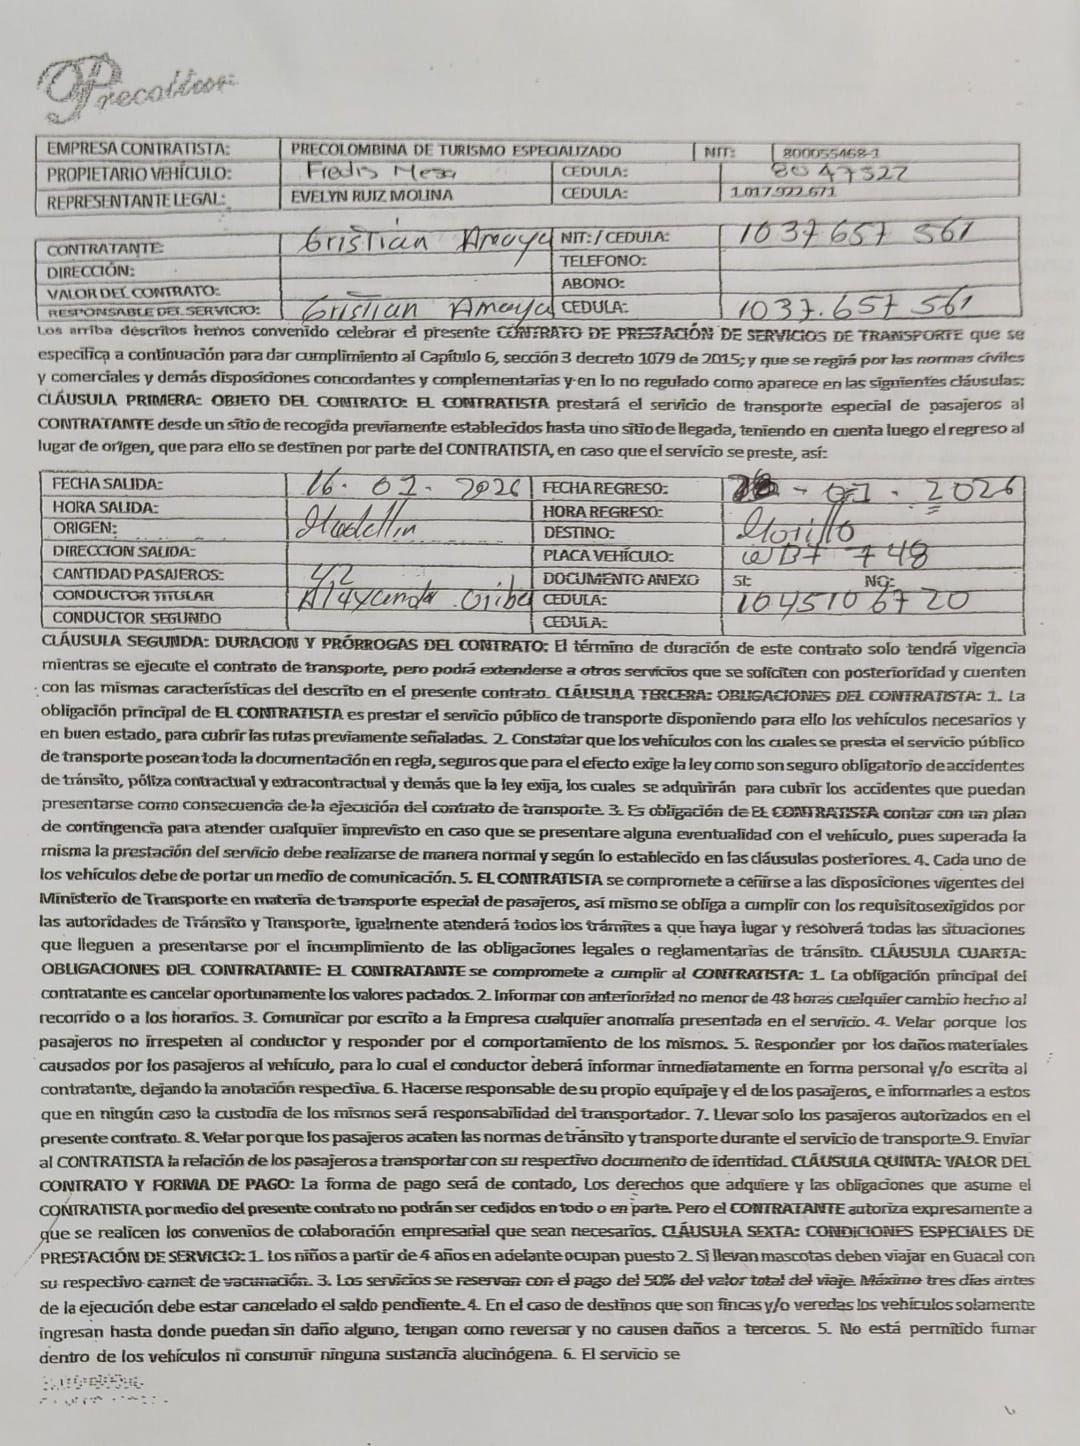 Precoltur
EMPRESA CONTRATISTA: PRECOLOMBINA DE TURISMO ESPECIALIZADO NIT: 800055468-1
PROPIETARIO VEHÍCULO: Fredis Mesa CEDULA: 8047327
REPRESENTANTE LEGAL: EVELYN RUIZ MOLINA CEDULA: 1.017.922.671
CONTRATANTE: Cristian Amaya NIT: / CEDULA: 1037 657 561
DIRECCIÓN: TELEFONO:
VALOR DEL CONTRATO: ABONO:
RESPONSABLE DEL SERVICIO: Cristian Amaya CEDULA: 1037.657 561
Los arriba descritos hemos convenido celebrar el presente CONTRATO DE PRESTACIÓN DE SERVICIOS DE TRANSPORTE que se
especifica a continuación para dar cumplimiento al Capítulo 6, sección 3 decreto 1079 de 2015; y que se regirá por las normas civiles
y comerciales y demás disposiciones concordantes y complementarias y en lo no regulado como aparece en las siguientes cláusulas:
CLÁUSULA PRIMERA: OBJETO DEL CONTRATO: EL CONTRATISTA prestará el servicio de transporte especial de pasajeros al
CONTRATANTE desde un sitio de recogida previamente establecidos hasta uno sitio de llegada, teniendo en cuenta luego el regreso al
lugar de origen, que para ello se destinen por parte del CONTRATISTA, en caso que el servicio se preste, así:
FECHA SALIDA: 16. 01. 2026 FECHA REGRESO: - 01. 2026
HORA SALIDA: HORA REGRESO:
ORIGEN: Medellin DESTINO: Morillo
DIRECCION SALIDA: PLACA VEHÍCULO: 748
CANTIDAD PASAJEROS: 42 DOCUMENTO ANEXO SI: NO:
CONDUCTOR TITULAR Alexander Uribe CEDULA: 1045106720
CONDUCTOR SEGUNDO CEDULA:
CLÁUSULA SEGUNDA: DURACION Y PRÓRROGAS DEL CONTRATO: El término de duración de este contrato solo tendrá vigencia
mientras se ejecute el contrato de transporte, pero podrá extenderse a otros servicios que se soliciten con posterioridad y cuenten
con las mismas características del descrito en el presente contrato. CLÁUSULA TERCERA: OBLIGACIONES DEL CONTRATISTA: 1. La
obligación principal de EL CONTRATISTA es prestar el servicio público de transporte disponiendo para ello los vehículos necesarios y
en buen estado, para cubrir las rutas previamente señaladas. 2. Constatar que los vehículos con los cuales se presta el servicio público
de transporte posean toda la documentación en regla, seguros que para el efecto exige la ley como son seguro obligatorio de accidentes
de tránsito, póliza contractual y extracontractual y demás que la ley exija, los cuales se adquirirán para cubrir los accidentes que puedan
presentarse como consecuencia de la ejecución del contrato de transporte. 3. Es obligación de EL CONTRATISTA contar con un plan
de contingencia para atender cualquier imprevisto en caso que se presentare alguna eventualidad con el vehículo, pues superada la
misma la prestación del servicio debe realizarse de manera normal y según lo establecido en las cláusulas posteriores. 4. Cada uno de
los vehículos debe de portar un medio de comunicación. 5. EL CONTRATISTA se compromete a ceñirse a las disposiciones vigentes del
Ministerio de Transporte en materia de transporte especial de pasajeros, así mismo se obliga a cumplir con los requisitosexigidos por
las autoridades de Tránsito y Transporte, igualmente atenderá todos los trámites a que haya lugar y resolverá todas las situaciones
que lleguen a presentarse por el incumplimiento de las obligaciones legales o reglamentarias de tránsito. CLÁUSULA CUARTA:
OBLIGACIONES DEL CONTRATANTE: EL CONTRATANTE se compromete a cumplir al CONTRATISTA: 1. La obligación principal del
contratante es cancelar oportunamente los valores pactados. 2. Informar con anterioridad no menor de 48 horas cualquier cambio hecho al
recorrido o a los horarios. 3. Comunicar por escrito a la Empresa cualquier anomalía presentada en el servicio. 4. Velar porque los
pasajeros no irrespeten al conductor y responder por el comportamiento de los mismos. 5. Responder por los daños materiales
causados por los pasajeros al vehículo, para lo cual el conductor deberá informar inmediatamente en forma personal y/o escrita al
contratante, dejando la anotación respectiva. 6. Hacerse responsable de su propio equipaje y el de los pasajeros, e informarles a estos
que en ningún caso la custodia de los mismos será responsabilidad del transportador. 7. Llevar solo los pasajeros autorizados en el
presente contrato. 8. Velar por que los pasajeros acaten las normas de tránsito y transporte durante el servicio de transporte.9. Enviar
al CONTRATISTA la relación de los pasajeros a transportar con su respectivo documento de identidad. CLÁUSULA QUINTA: VALOR DEL
CONTRATO Y FORMA DE PAGO: La forma de pago será de contado, Los derechos que adquiere y las obligaciones que asume el
CONTRATISTA por medio del presente contrato no podrán ser cedidos en todo o en parte. Pero el CONTRATANTE autoriza expresamente a
que se realicen los convenios de colaboración empresarial que sean necesarios. CLÁUSULA SEXTA: CONDICIONES ESPECIALES DE
PRESTACIÓN DE SERVICIO: 1. Los niños a partir de 4 años en adelante ocupan puesto 2. Si llevan mascotas deben viajar en Guacal con
su respectivo carnet de vacunación. 3. Los servicios se reservan con el pago del 50% del valor total del viaje. Máximo tres días antes
de la ejecución debe estar cancelado el saldo pendiente. 4. En el caso de destinos que son fincas y/o veredas los vehículos solamente
ingresan hasta donde puedan sin daño alguno, tengan como reversar y no causen daños a terceros. 5. No está permitido fumar
dentro de los vehículos ni consumir ninguna sustancia alucinógena. 6. El servicio se